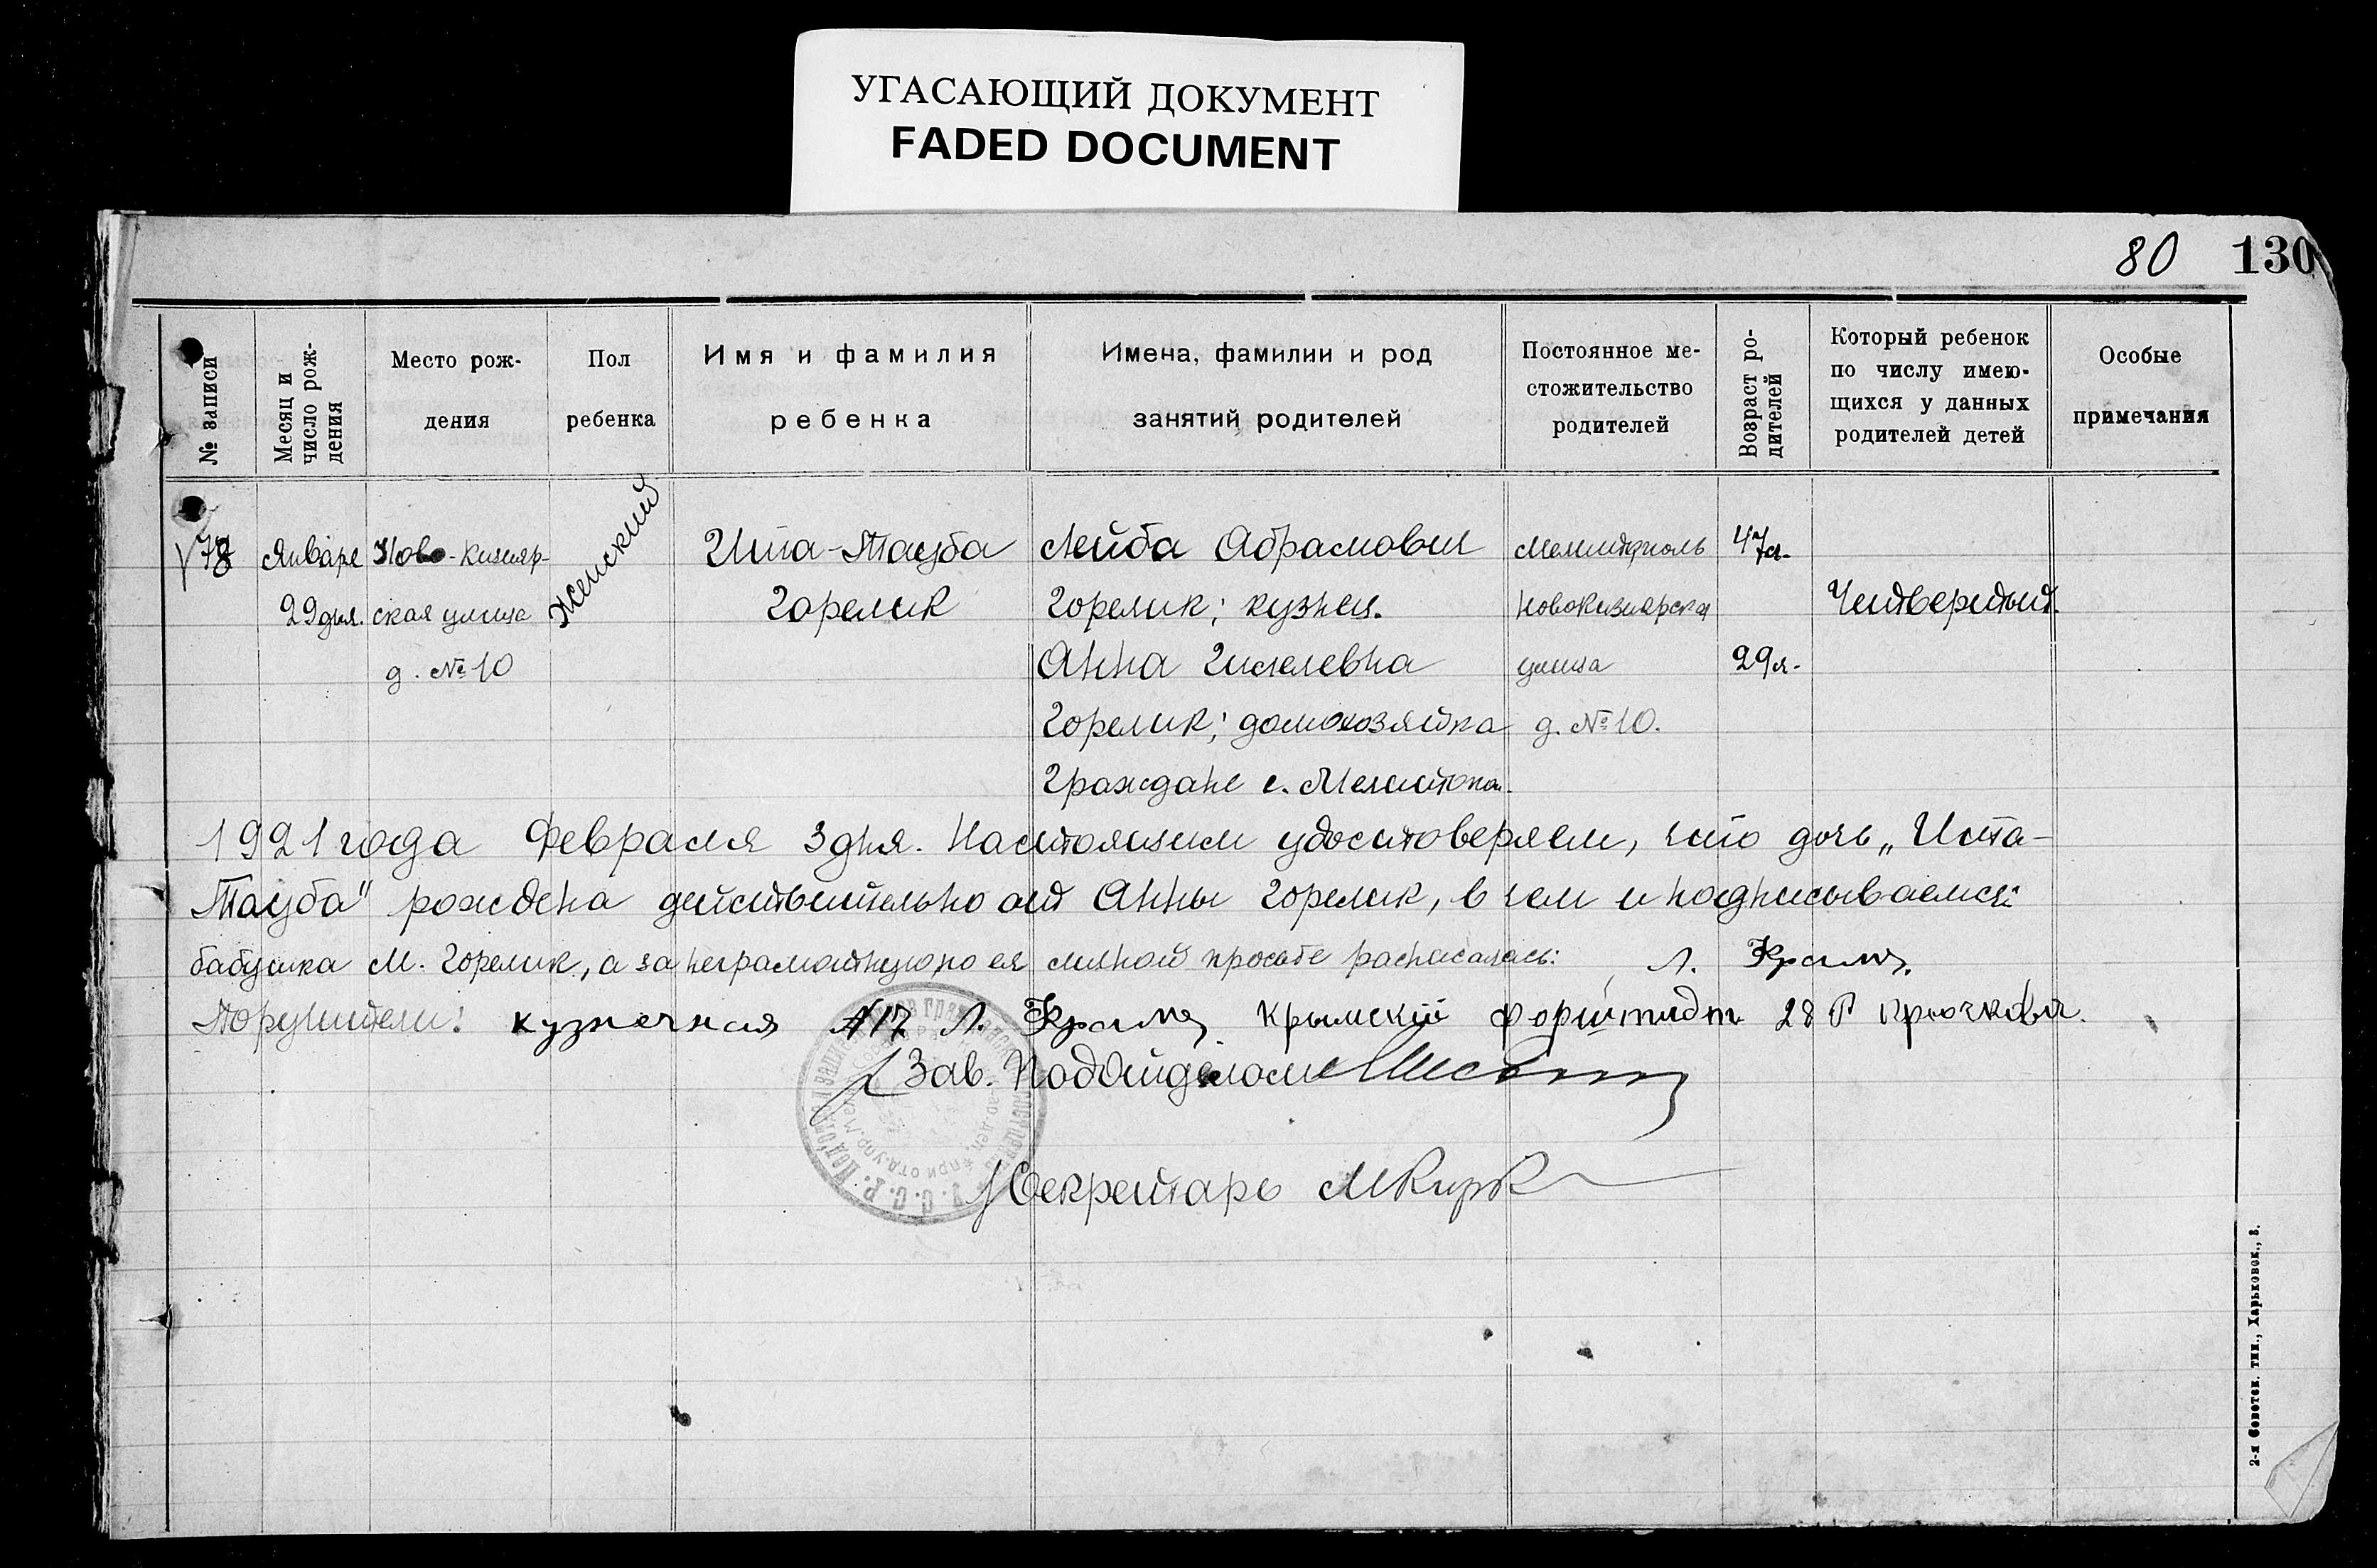 УГАСАЮЩИЙ ДОКУМЕНТ
FADED DOCUMENT
80 130
№ записи
Месяц и число рож-
дения
Место рож-
дения
Пол
ребенка
Имя и фамилия
ребенка
Имена, фамилии и род
занятий родителей
Постоянное ме-
стожительство
родителей
Возраст ро-
дителей
Который ребенок
по числу имею-
щихся у данных
родителей детей
Особые
примечания
78
Января
29 дня.
Ново-Кизияр-
ская улица
д. № 10
Женский
Ита-Тауба
Горелик
Лейба Абрамович
Горелик; кузнец.
Анна Гилелевна
Горелик; домохозяйка
Граждане г. Мелитопол.
Мелитополь
Новокизиярская
улица
д. № 10.
47 л.
29 л.
Четвертый.
1921 года Февраля 3 дня. Настоящим удостоверяем, что дочь „Ита-
Тауба" рождена действительно от Анны Горелик, в чем и подписываемся:
бабушка М. Горелик, а за неграмотную, по ея личной просьбе расписалась: Л.
Поручители: кузнечная №17 Л. Крымский форштадт 28 Р Крючкова.
Зав. Подотделом
Секретарь
2-я Советск. тип., Харьковск., 8.